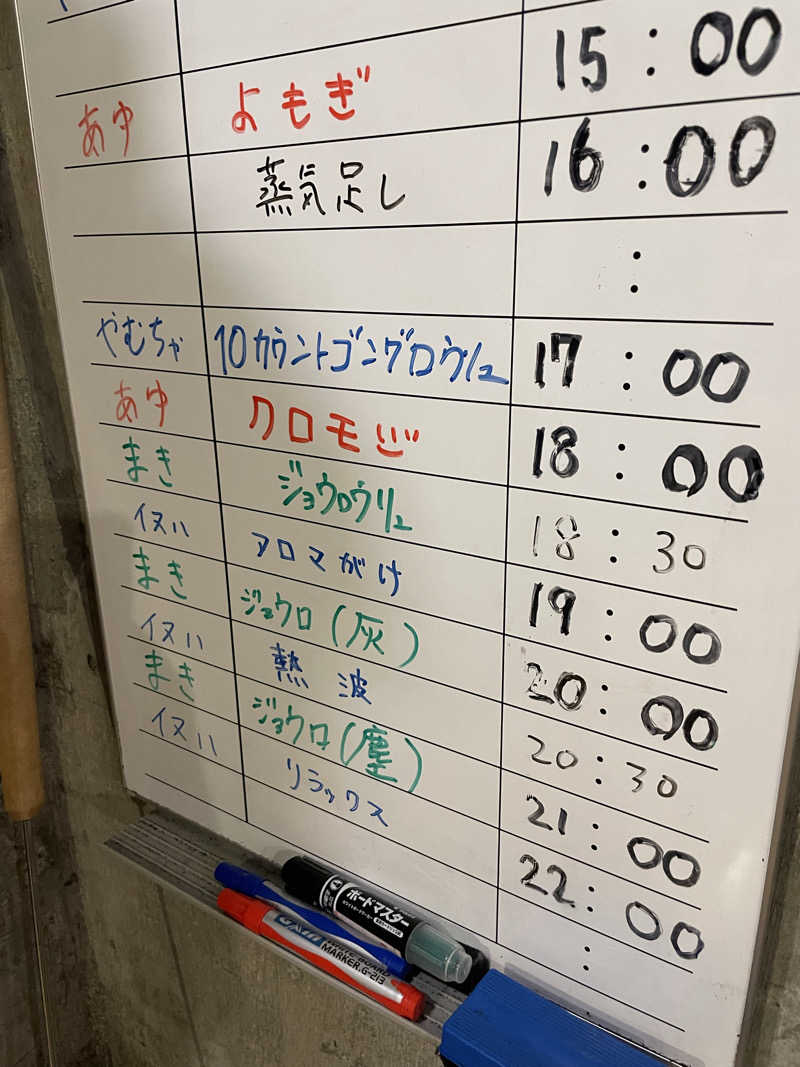 あゆ よもぎ 15:00
蒸気足し 16:00
:
やむちゃ 10カウントゴングロウリュ 17:00
あゆ クロモジ 18:00
まき ジョウロウリュ 18:30
イヌい アロマがけ 19:00
まき ジョウロ(灰) 20:00
イヌい 熱波 20:30
まき ジョウロ(塵) 21:00
イヌい リラックス 22:00
:
ボードマスター
WHITE BOARD
MARKER.G-213